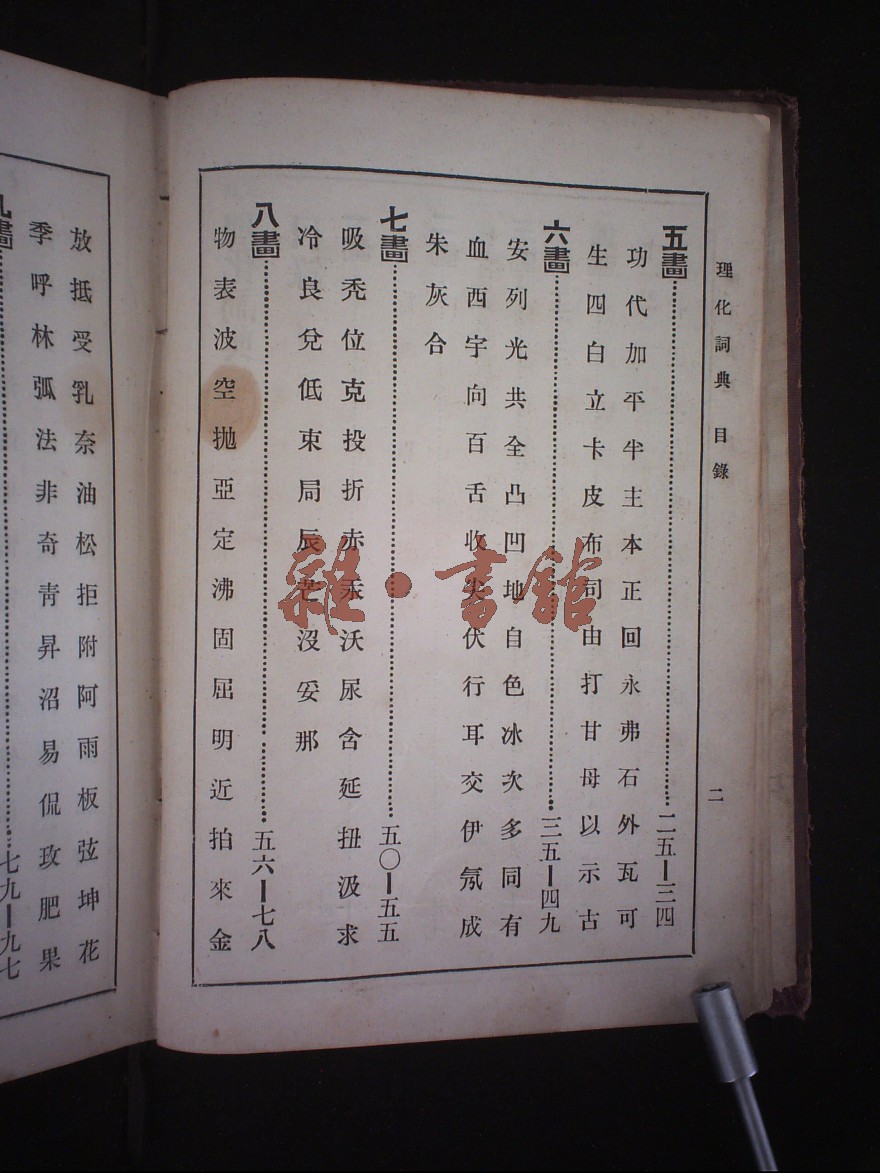 理化詞典 目錄 二
五畫……二五—三四
功代加平半主本正回永弗石外瓦可
生四白立卡皮布司由打甘母以示古
六畫……三五—四九
安列光共全凸凹地自色冰次多同有
血西宇向百舌收尖伏行耳交伊氖成
朱灰合
七畫……五〇—五五
吸禿位克投折赤汞沃尿含延扭汲求
冷良兌低束局辰芒沒妥那
八畫……五六—七八
物表波空拋亞定沸固屈明近拍來金
放抵受乳奈油松拒附阿雨板弦坤花
季呼林弧法非奇青昇沼易侃玫肥果
九畫……七九—九七
雜·書館